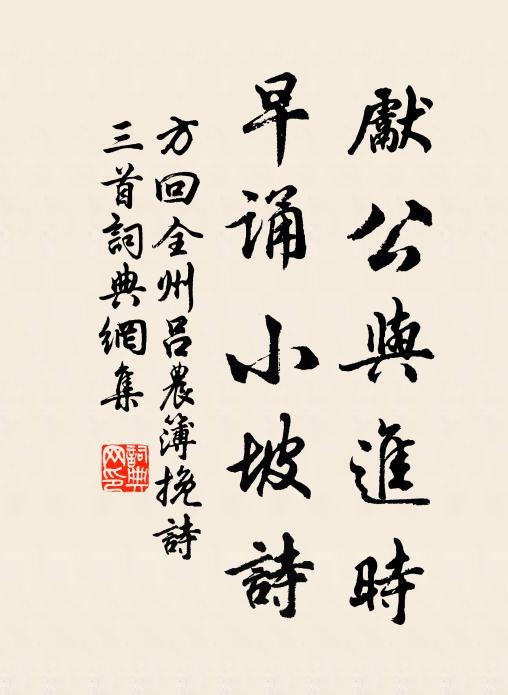 獻公與進時
早誦小坡詩
方回全州呂農簿挽詩
三首詞典網集
詞典
网印